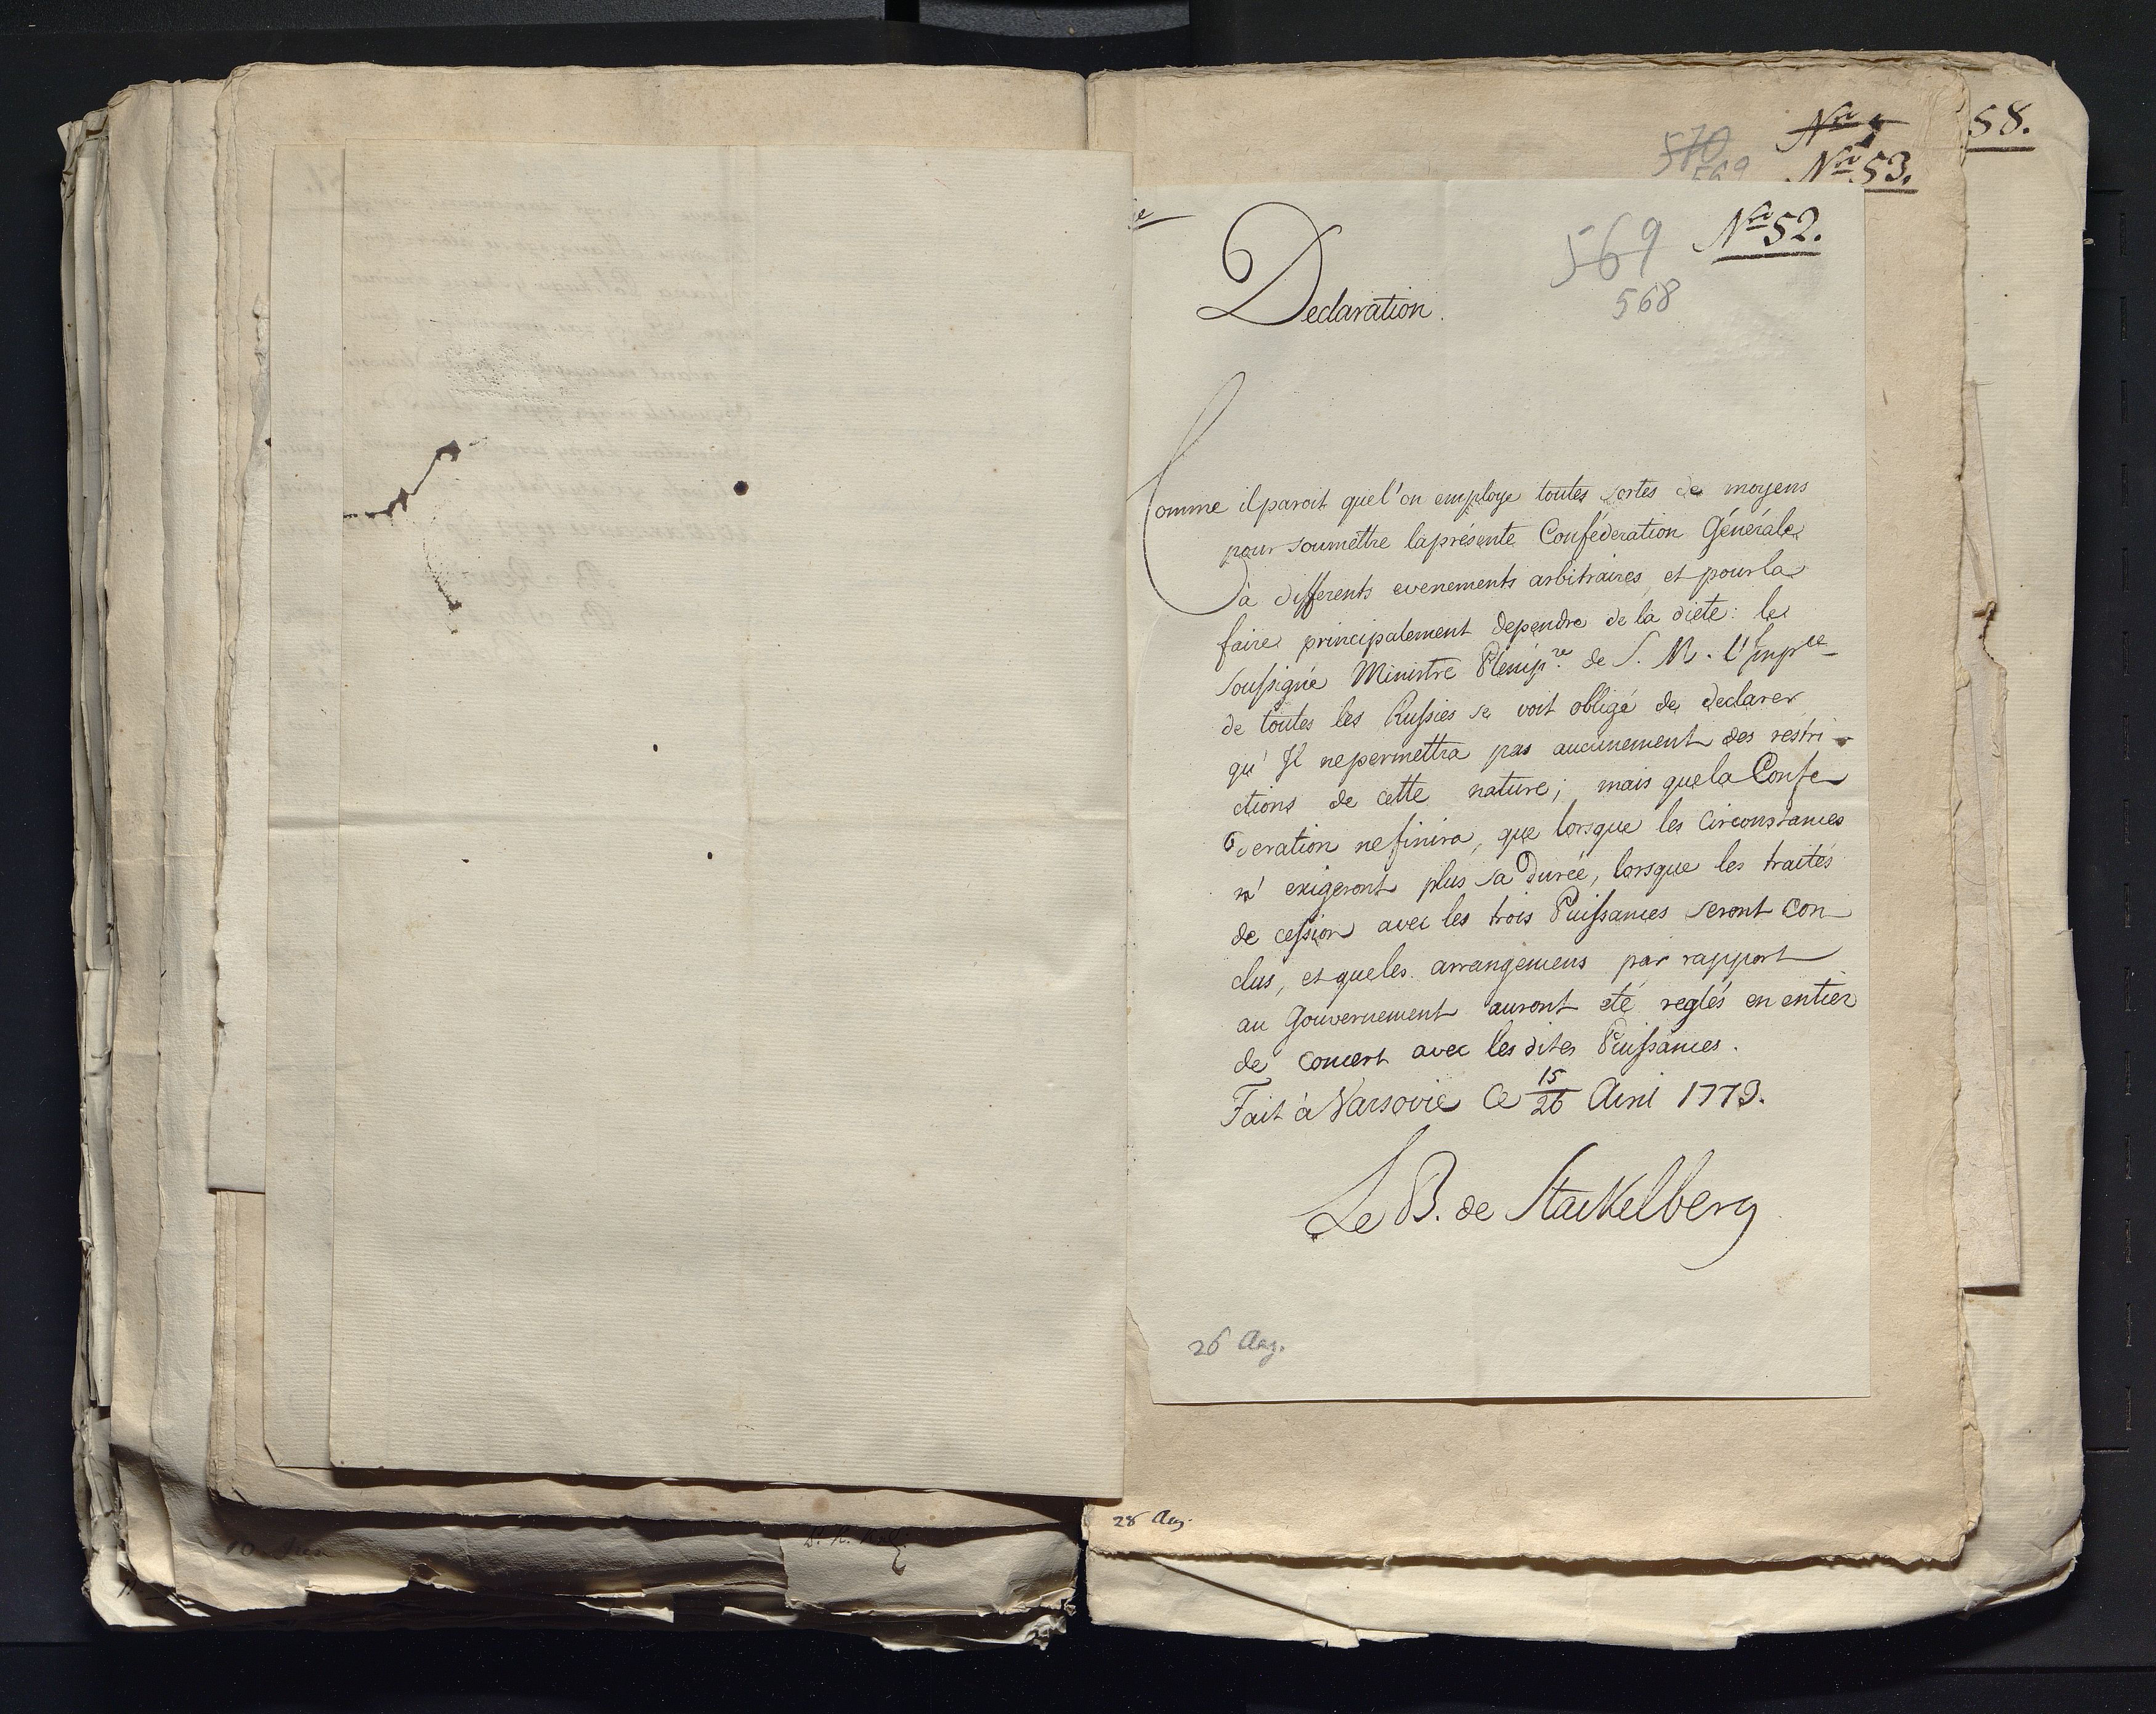 58.
570
569
N<sup>ro</sup> 53.
569
N<sup>ro</sup> 52.
568
Declaration.
Comme il paroit que l'on employe toutes sortes de moyens
pour soumettre la présente Conféderation Générale
à differents evenements arbitraires, et pour la
faire principalement dependre de la diete: le
soussigné Ministre Plénip.<sup>re</sup> de S. M. l'Imp<sup>ce</sup>
de toutes les Russies se voit obligé de declarer
qu'Il ne permettra pas aucunement des restri-
ctions de cette nature; mais que la Confe-
deration ne finira, que lorsque les circonstances
n'exigeront plus sa Durée, lorsque les traités
de cession avec les trois Puissances seront con-
clus, et que les arrangemens par rapport
au Gouvernement auront eté reglés en entier
de concert avec les dites Puissances.
Fait à Varsovie Ce 15/26 Avril 1773.
Le B. de Stackelberg
26 Aug.
28 Aug.